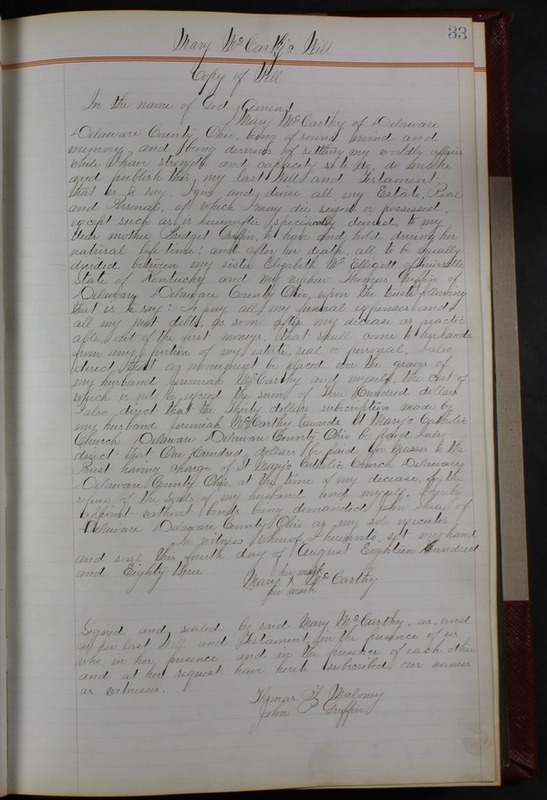 33
Mary McCarthy's Will
Copy of Will
In the name of God Amen!
I Mary McCarthy of Delaware
Delaware County Ohio, being of sound mind and
memory and being desirous of settling my worldly affairs
while I have strength and capacity so to do, do make
and publish this my last Will and Testament:
that is to say. I give and devise all my Estate, Real
and Personal, of which I may die seized or possessed,
except such as is hereinafter specifically devised, to my
dear mother Bridget Griffin, to have and hold during her
natural life time: and after her death, all to be equally
divided between my sister Elizabeth McElligott of
State of Kentucky and my nephew Thomas Griffin of
Delaware Delaware County Ohio, upon the trusts following
that is to say: To pay all my funeral expenses and
all my just debts, as soon after my decease as practic
able, out of the first moneys, that shall come to her hands
from any portion of my estate, real or personal, I also
direct that a monument be placed over the graves of
my husband Jeremiah McCarthy and myself, the cost of
which is not to exceed the sum of Three Hundred dollars
I also direct that the Thirty dollars subscription made by
my husband Jeremiah McCarthy towards St Mary's Catholic
Church Delaware Delaware County Ohio be paid I also
direct that One Hundred dollars be paid for Masses to the
Priest having charge of St Mary's Catholic Church Delaware
Delaware County Ohio at the time of my decease, for the
repose of the Souls of my husband and myself. I hereby
appoint without bonds being demanded John Shea of
Delaware Delaware County Ohio as my sole executor
In witness whereof I hereunto set my hand
and seal this fourth day of August Eighteen Hundred
and Eighty three
her mark
Mary X McCarthy
her mark
Signed and sealed by said Mary McCarthy, as, and
for her last Will and Testament, in the presence of us
who in her presence and in the presence of each other
and at her request have hereto subscribed our names
as witnesses.
Thomas F Maloney
John P Griffin